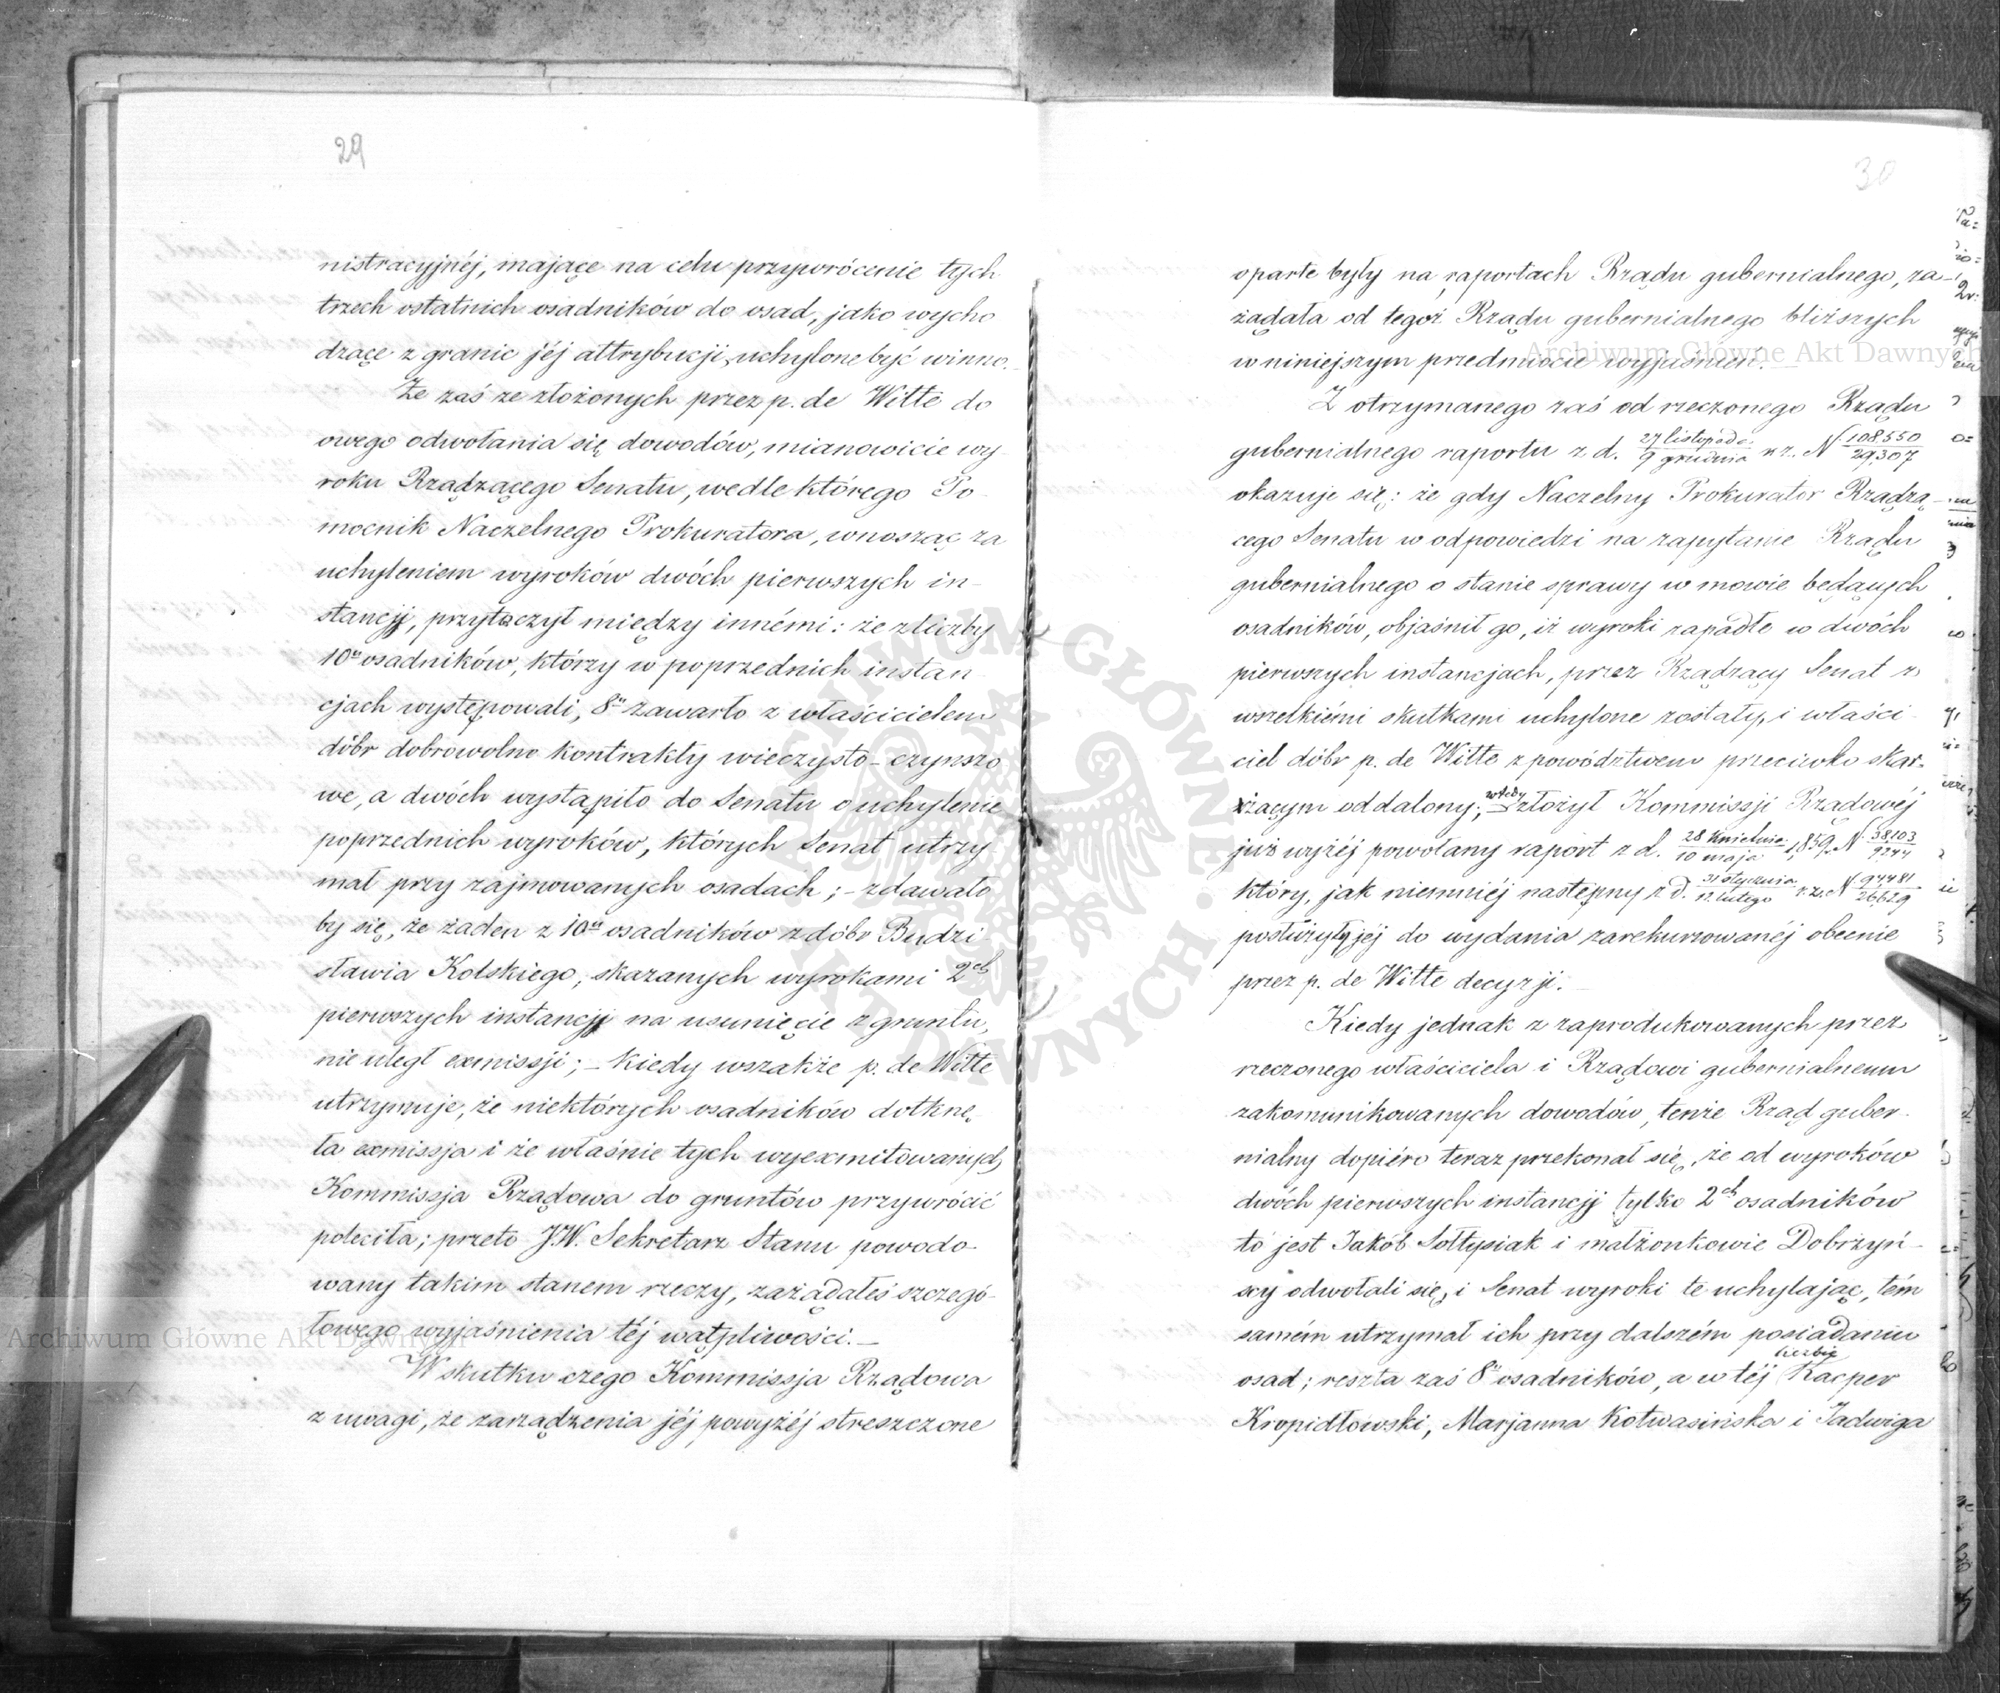 29
nistracyjnéj, mające na celu przywrócenie tych
trzech ostatnich osadników do osad, jako wycho
dzące z granic jéj attrybucji, uchylone być winno.
Że zaś ze złożonych przez p. de Witte do
owego odwołania się dowodów, mianowicie wy
roku Rządzącego Senatu, wedle którego Po
mocnik Naczelnego Prokuratora, wnosząc za
uchyleniem wyroków dwóch pierwszych in-
stancji, przytoczył między innémi: że z liczby
10u osadników, którzy w poprzednich instan
cjach występowali, 8u zawarło z właścicielem
dóbr dobrowolne kontrakty wieczysto-czynszo
we, a dwóch wystąpiło do Senatu o uchylenie
poprzednich wyroków, których Senat utrzy
mał przy zajmowanych osadach; – zdawało
by się, że żaden z 10u osadników z dóbr Budzi
sławia Kolskiego, skazanych wyrokami 2ch
pierwszych instancji na usunięcie z gruntu,
nie uległ exmissji; – kiedy wszakże p. de Witte
utrzymuje, że niektórych osadników dotknę
ła exmissja i że właśnie tych wyexmitowanych
Kommissja Rządowa do gruntów przywrócić
poleciła; przeto JW. Sekretarz Stanu powodo
wany takim stanem rzeczy, zażądałeś szczegó
łowego wyjaśnienia téj wątpliwości. –
W skutku czego Kommissja Rządowa
z uwagi, że zarządzenia jéj powyżéj streszczone
30
oparte były na raportach Rządu gubernialnego, za-
żądała od tegoż Rządu gubernialnego bliższych
w niniejszym przedmiocie wyjaśnień. –
Z otrzymanego zaś od rzeczonego Rządu
gubernialnego raportu z d. 27 listopada / 9 grudnia r. z. N 108,550 / 29,307
okazuje się: że gdy Naczelny Prokurator Rządzą-
cego Senatu w odpowiedzi na zapytanie Rządu
gubernialnego o stanie sprawy w mowie będących
osadników, objaśnił go, iż wyroki zapadłe w dwóch
pierwszych instancjach, przez Rządzący Senat z
wszelkiémi skutkami uchylone zostały, i właści
ciel dóbr p. de Witte z powództwem przeciwko skar-
żącym oddalony; wtedy złożył Kommissji Rządowéj
już wyżéj powołany raport z d. 28 kwietnia / 10 maja 1859. N 38,103 / 9244
który, jak niemniéj następny z d. 31 stycznia / 12 lutego r. z. N 94481 / 26,629
posłużyły jéj do wydania zarekursowanéj obecnie
przez p. de Witte decyzji. –
Kiedy jednak z zaprodukowanych przez
rzeczonego właściciela i Rządowi gubernialnemu
zakomunikowanych dowodów, tenże Rząd guber
nialny dopiéro teraz przekonał się, że od wyroków
dwóch pierwszych instancji tylko 2ch osadników
to jest Jakób Sołtysiak i małżonkowie Dobrzyń-
scy odwołali się, i Senat wyroki te uchylając, tém
samém utrzymał ich przy dalszém posiadaniu
osad; reszta zaś 8u osadników, a w téj liczbie Kacper
Kropidłowski, Marjanna Kotwasińska i Jadwiga
ARCHIWUM GŁÓWNE AKT DAWNYCH
Archiwum Główne Akt Dawnych
Archiwum Główne Akt Dawnych